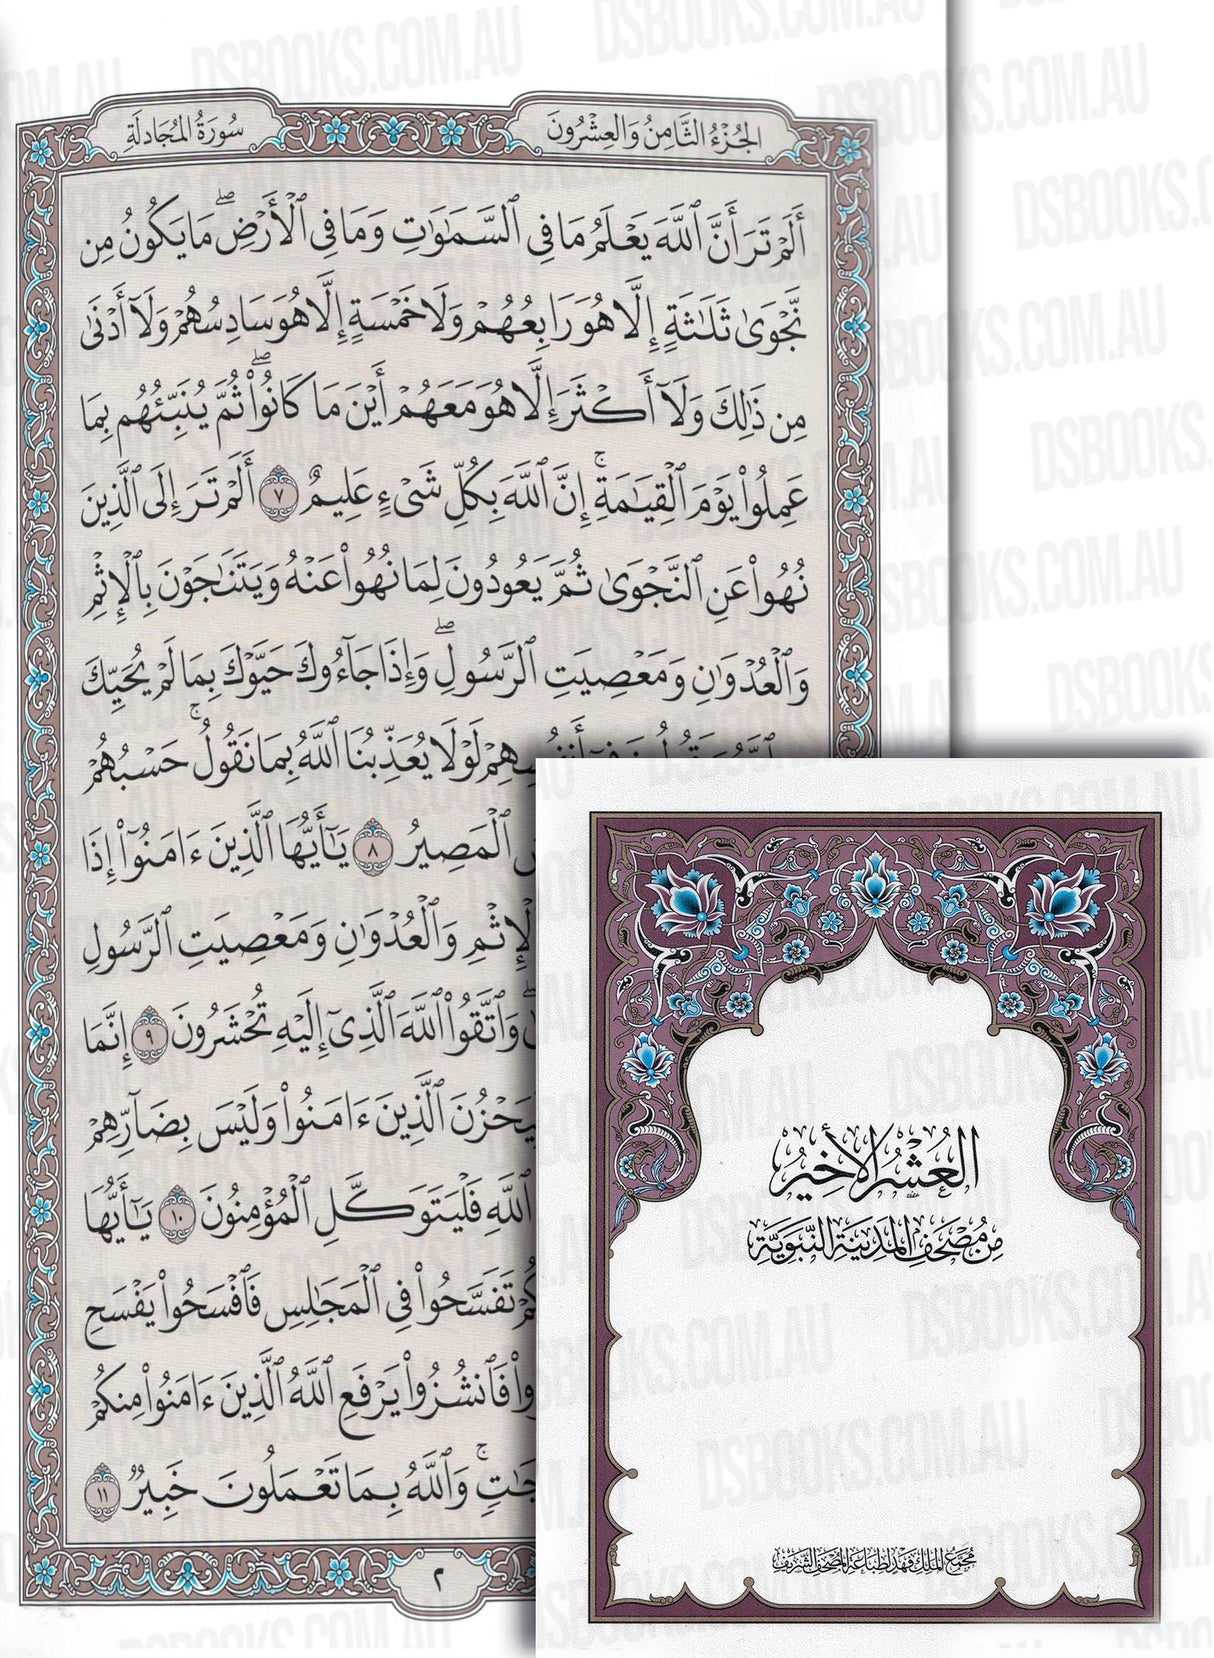 الجُزْءُ الثَّامِنُ وَالعِشْرُونَ
سُورَةُ المُجَادلَةِ
أَلَمْ تَرَ أَنَّ ٱللَّهَ يَعْلَمُ مَا فِي ٱلسَّمَٰوَٰتِ وَمَا فِي ٱلْأَرْضِۖ مَا يَكُونُ مِن
نَّجْوَىٰ ثَلَٰثَةٍ إِلَّا هُوَ رَابِعُهُمْ وَلَا خَمْسَةٍ إِلَّا هُوَ سَادِسُهُمْ وَلَآ أَدْنَىٰ
مِن ذَٰلِكَ وَلَآ أَكْثَرَ إِلَّا هُوَ مَعَهُمْ أَيْنَ مَا كَانُواْۖ ثُمَّ يُنَبِّئُهُم بِمَا
عَمِلُواْ يَوْمَ ٱلْقِيَٰمَةِۚ إِنَّ ٱللَّهَ بِكُلِّ شَيْءٍ عَلِيمٌ ٧ أَلَمْ تَرَ إِلَى ٱلَّذِينَ
نُهُواْ عَنِ ٱلنَّجْوَىٰ ثُمَّ يَعُودُونَ لِمَا نُهُواْ عَنْهُ وَيَتَنَٰجَوْنَ بِٱلْإِثْمِ
وَٱلْعُدْوَٰنِ وَمَعْصِيَتِ ٱلرَّسُولِۖ وَإِذَا جَآءُوكَ حَيَّوْكَ بِمَا لَمْ يُحَيِّكَ
لَوْلَا يُعَذِّبُنَا ٱللَّهُ بِمَا نَقُولُۚ حَسْبُهُمْ
ٱلْمَصِيرُ ٨ يَٰٓأَيُّهَا ٱلَّذِينَ ءَامَنُوٓاْ إِذَا
وَٱلْعُدْوَٰنِ وَمَعْصِيَتِ ٱلرَّسُولِ
وَٱتَّقُواْ ٱللَّهَ ٱلَّذِيٓ إِلَيْهِ تُحْشَرُونَ ٩ إِنَّمَا
ٱلَّذِينَ ءَامَنُواْ وَلَيْسَ بِضَآرِّهِمْ
ٱللَّهِ فَلْيَتَوَكَّلِ ٱلْمُؤْمِنُونَ ١٠ يَٰٓأَيُّهَا
تَفَسَّحُواْ فِي ٱلْمَجَٰلِسِ فَٱفْسَحُواْ يَفْسَحِ
فَٱنشُزُواْ يَرْفَعِ ٱللَّهُ ٱلَّذِينَ ءَامَنُواْ مِنكُمْ
وَٱللَّهُ بِمَا تَعْمَلُونَ خَبِيرٌ ١١
٢
العُشْرُ الأَخِيرُ
مِنْ مُصْحَفِ المَدِينَةِ النَّبَوِيَّةِ
مجمع الملك فهد لطباعة المصحف الشريف
DSBOOKS.COM.AU